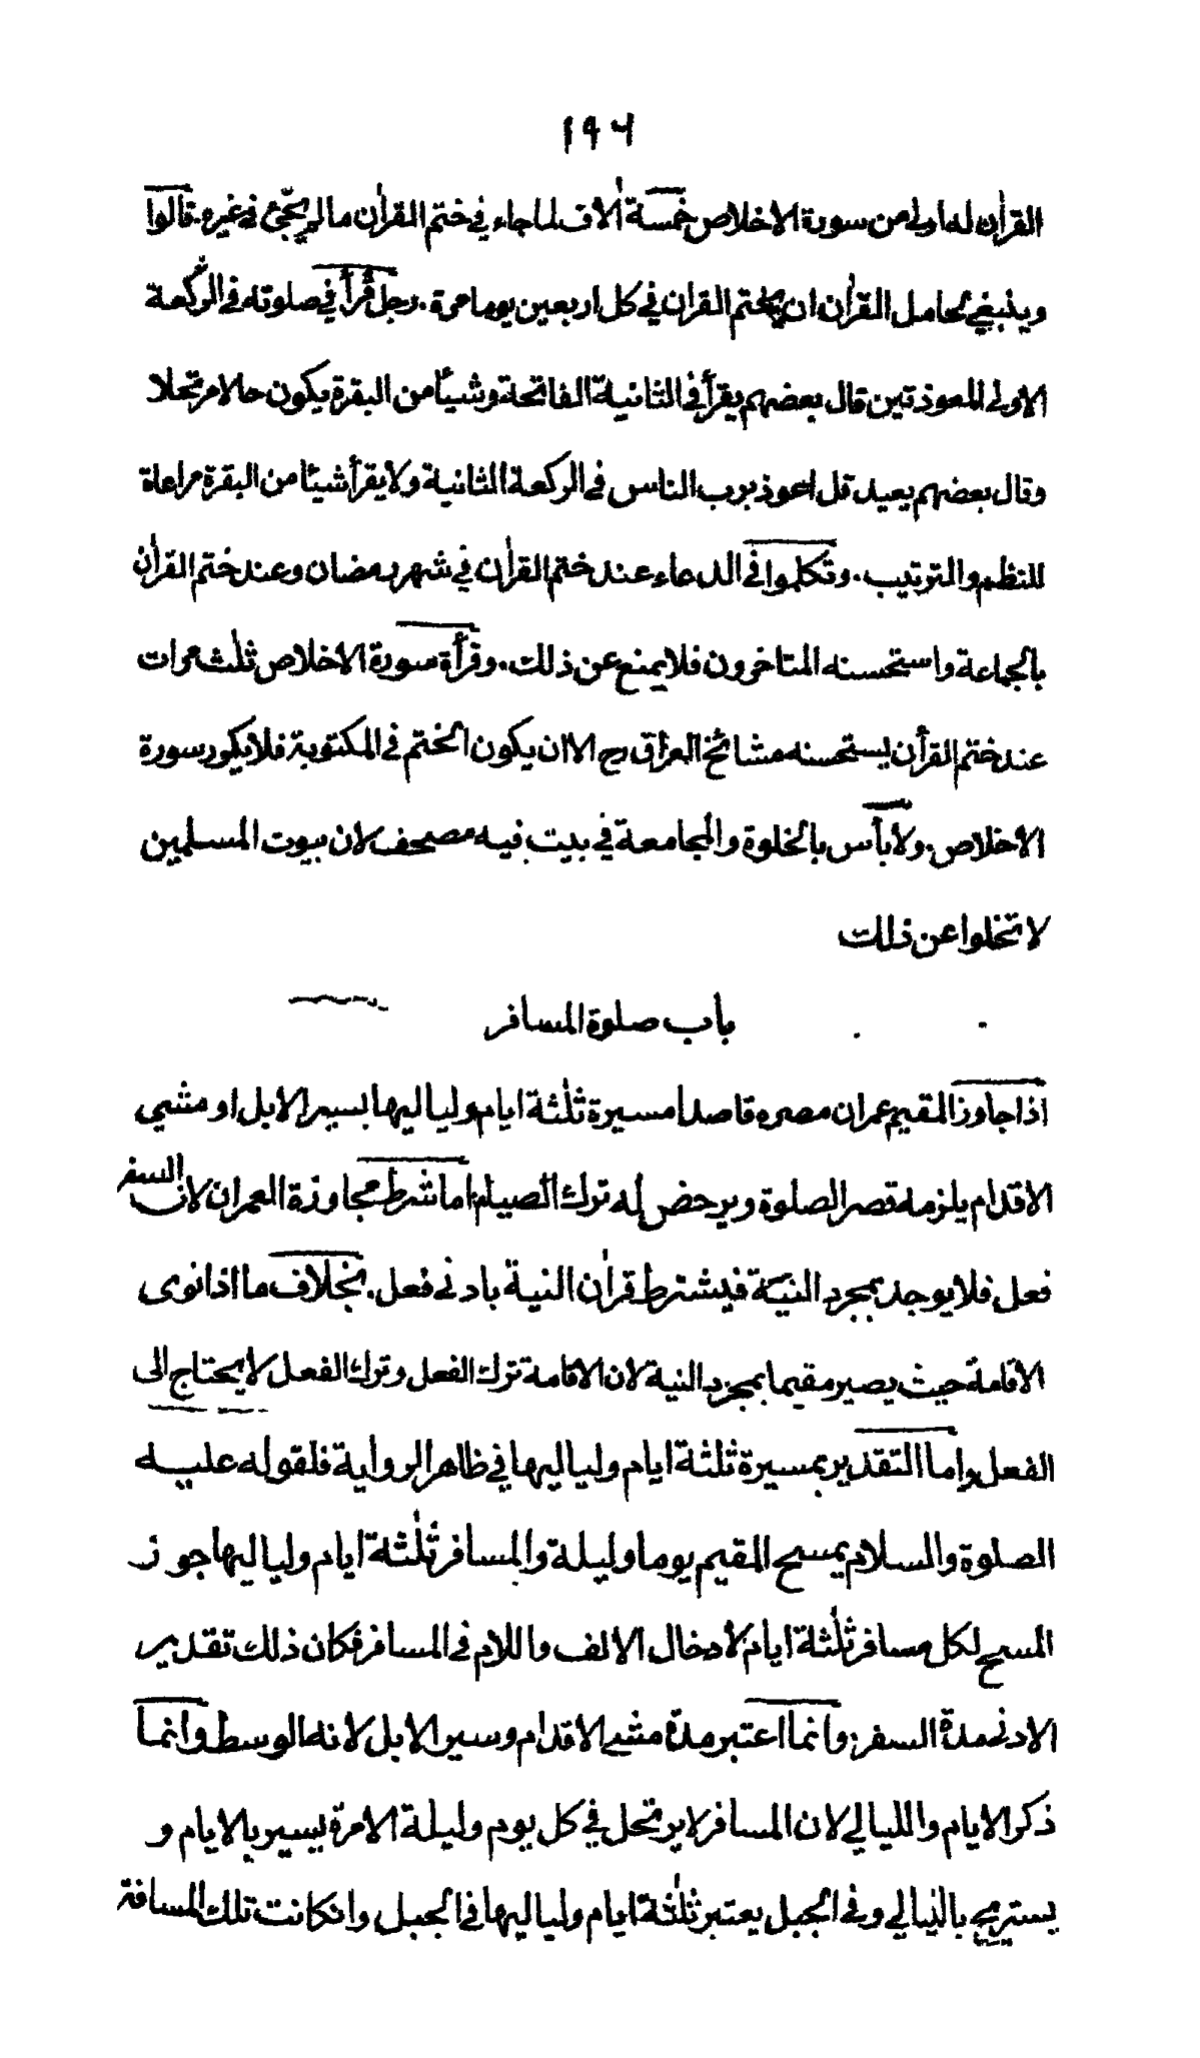 ١٩٦
القراٰن له اولى من سورة الاخلاص خمسة اٰلاف لما جاء في ختم القراٰن ما لم يجئ في غيره. قالوا
وينبغي لحامل القراٰن ان يختم القراٰن في كل اربعين يوما مرة. رجل قرأ في صلوته في الركعة
الاولى المعوذتين قال بعضهم يقرأ في الثانية الفاتحة وشيئا من البقرة يكون حالا مرتحلا
وقال بعضهم يعيد قل اعوذ برب الناس في الركعة الثانية ولا يقرأ شيئا من البقرة مراعاة
للنظم والترتيب. وتكلموا في الدعاء عند ختم القراٰن في شهر رمضان وعند ختم القراٰن
بالجماعة واستحسنه المتاخرون فلا يمنع عن ذلك. وقرأة سورة الاخلاص ثلٰث مرات
عند ختم القرأن يستحسنه مشائخ العراق رح الا ان يكون الختم في المكتوبة فلا يكرر سورة
الاخلاص. ولا بأس بالخلوة والمجامعة في بيت فيه مصحف لان بيوت المسلمين
لا تخلوا عن ذلك
باب صلوة المسافر
اذا جاوز المقيم عمران مصره قاصدا مسيرة ثلٰثة ايام ولياليها بسير الابل او مشي
الاقدام يلزمه قصر الصلوة ويرخص له ترك الصيام اما شرط مجاوزة العمران لان السفر
فعل فلا يوجد بمجرد النية فيشترط قراٰن النية بادنى فعل. بخلاف ما اذا نوى
الاقامة حيث يصير مقيما بمجرد النية لان الاقامة ترك الفعل وترك الفعل لا يحتاج الى
الفعل واما التقدير بمسيرة ثلثة ايام ولياليها في ظاهر الرواية فلقوله عليه
الصلوة والسلام يمسح المقيم يوما وليلة والمسافر ثلٰثة ايام ولياليها جوز
المسح لكل مسافر ثلٰثة ايام لادخال الالف واللام في المسافر فكان ذلك تقدير
الادنى مدة السفر وانما اعتبر مدة مشي الاقدام وسير الابل لانه الوسط وانما
ذكر الايام والليالي لان المسافر لا يرتحل في كل يوم وليلة الا مرة يسير بالايام و
يستريح بالليالي وفي الجبل يعتبر ثلٰثة ايام ولياليها في الجبل وان كانت تلك المسافة